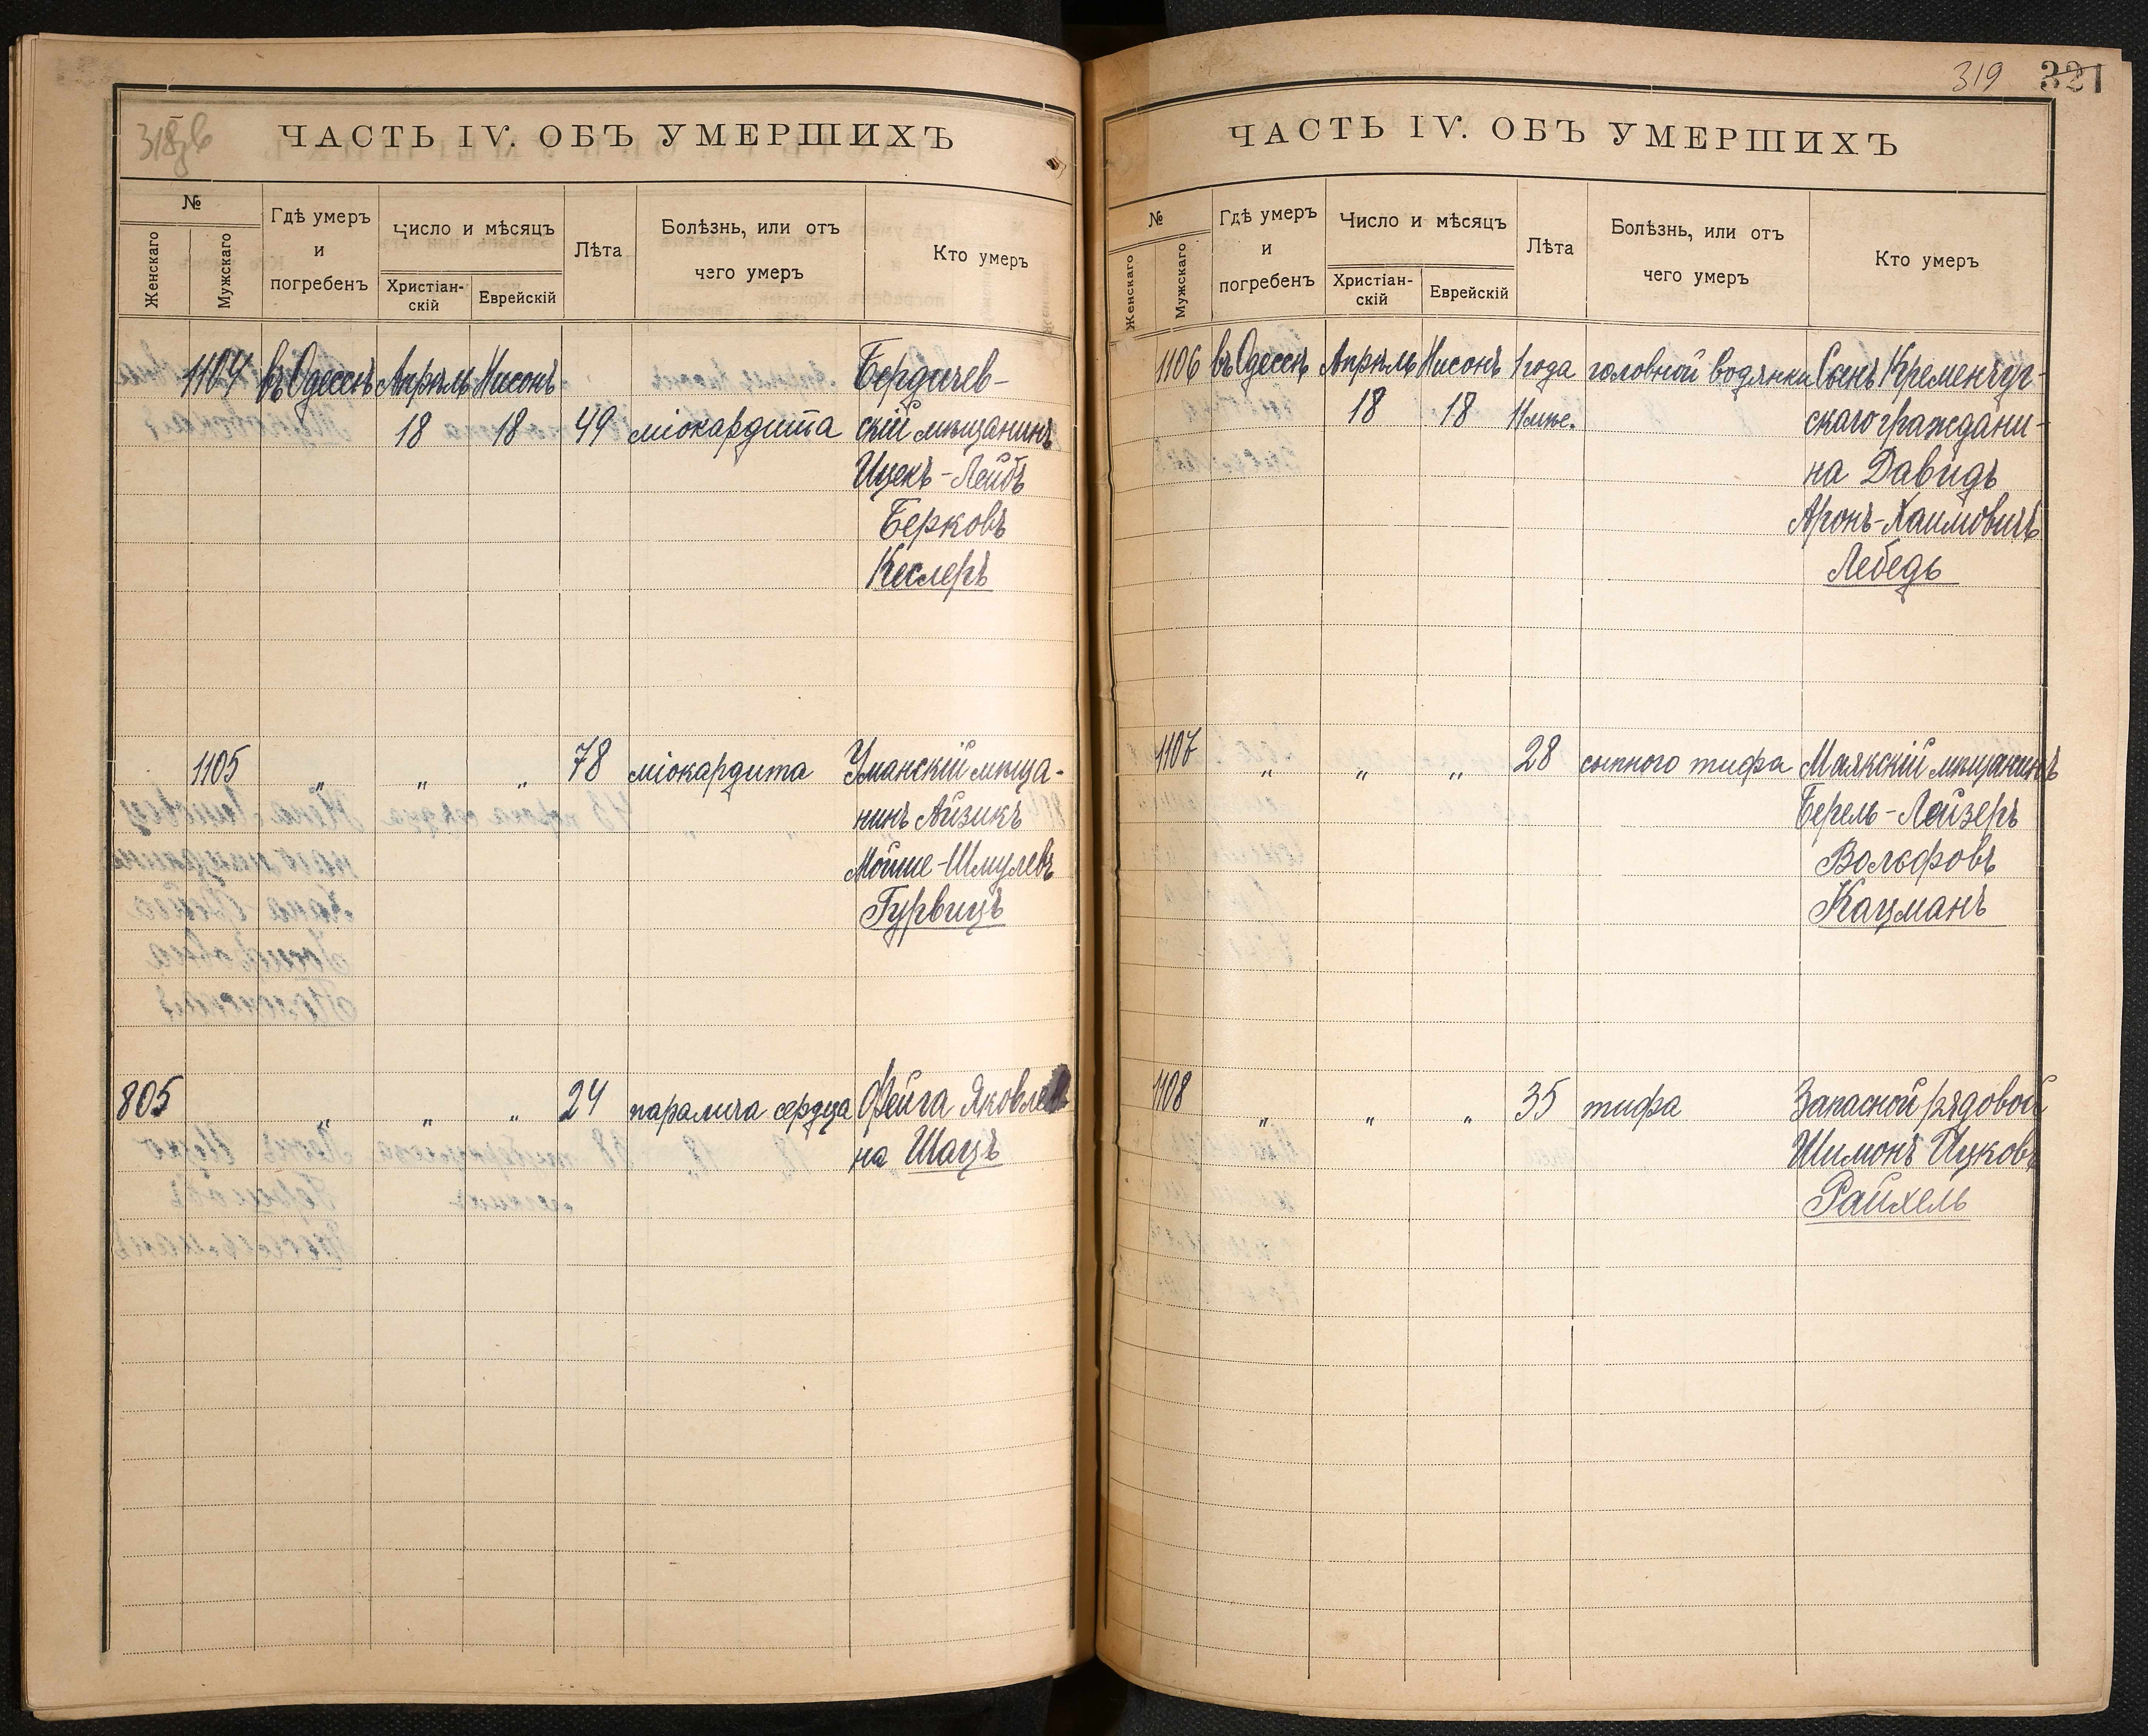 318об
ЧАСТЬ IV. ОБЪ УМЕРШИХЪ
№
Женскаго
Мужскаго
Гдѣ умеръ
и
погребенъ
Число и мѣсяцъ
Христіан-
скій
Еврейскій
Лѣта
Болѣзнь, или отъ
чего умеръ
Кто умеръ
1104 въ Одессѣ Апрѣль Нисонъ Бердичев-
18 18 49 міокардита скій мѣщанинъ
Ицекъ-Лейбъ
Берковъ
Кеслеръ
1105 „ „ „ 78 міокардита Уманскій мѣща-
нинъ Айзикъ
Мойше-Шмулевъ
Гурвицъ
805 „ „ „ 24 паралича сердца Фейга Яковлев
на Шацъ
319 321
ЧАСТЬ IV. ОБЪ УМЕРШИХЪ
№
Женскаго
Мужскаго
Гдѣ умеръ
и
погребенъ
Число и мѣсяцъ
Христіан-
скій
Еврейскій
Лѣта
Болѣзнь, или отъ
чего умеръ
Кто умеръ
1106 въ Одессѣ Апрѣль Нисонъ 1 года головной водянки Сынъ Кременчуг-
18 18 11 мѣс. скаго граждани-
на Давидъ
Аронъ-Хаимовичъ
Лебедь
1107 „ „ „ 28 сыпного тифа Маякскій мѣщанинъ
Берель-Лейзеръ
Вольфовъ
Кацманъ
1108 „ „ „ 35 тифа Запасной рядовой
Шимонъ Ицковъ
Райхель